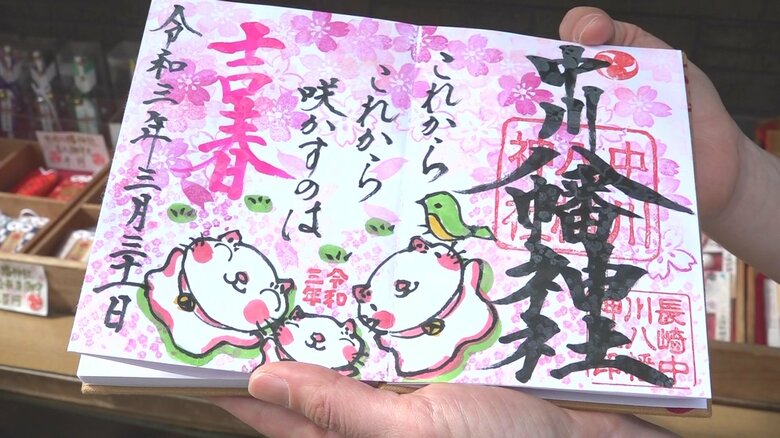 中川八幡神社
中川
八幡
神社
長崎中
川八幡
神社印
これから
これから
咲かすのは
吉春
令和三年三月三十一日
令和
三年